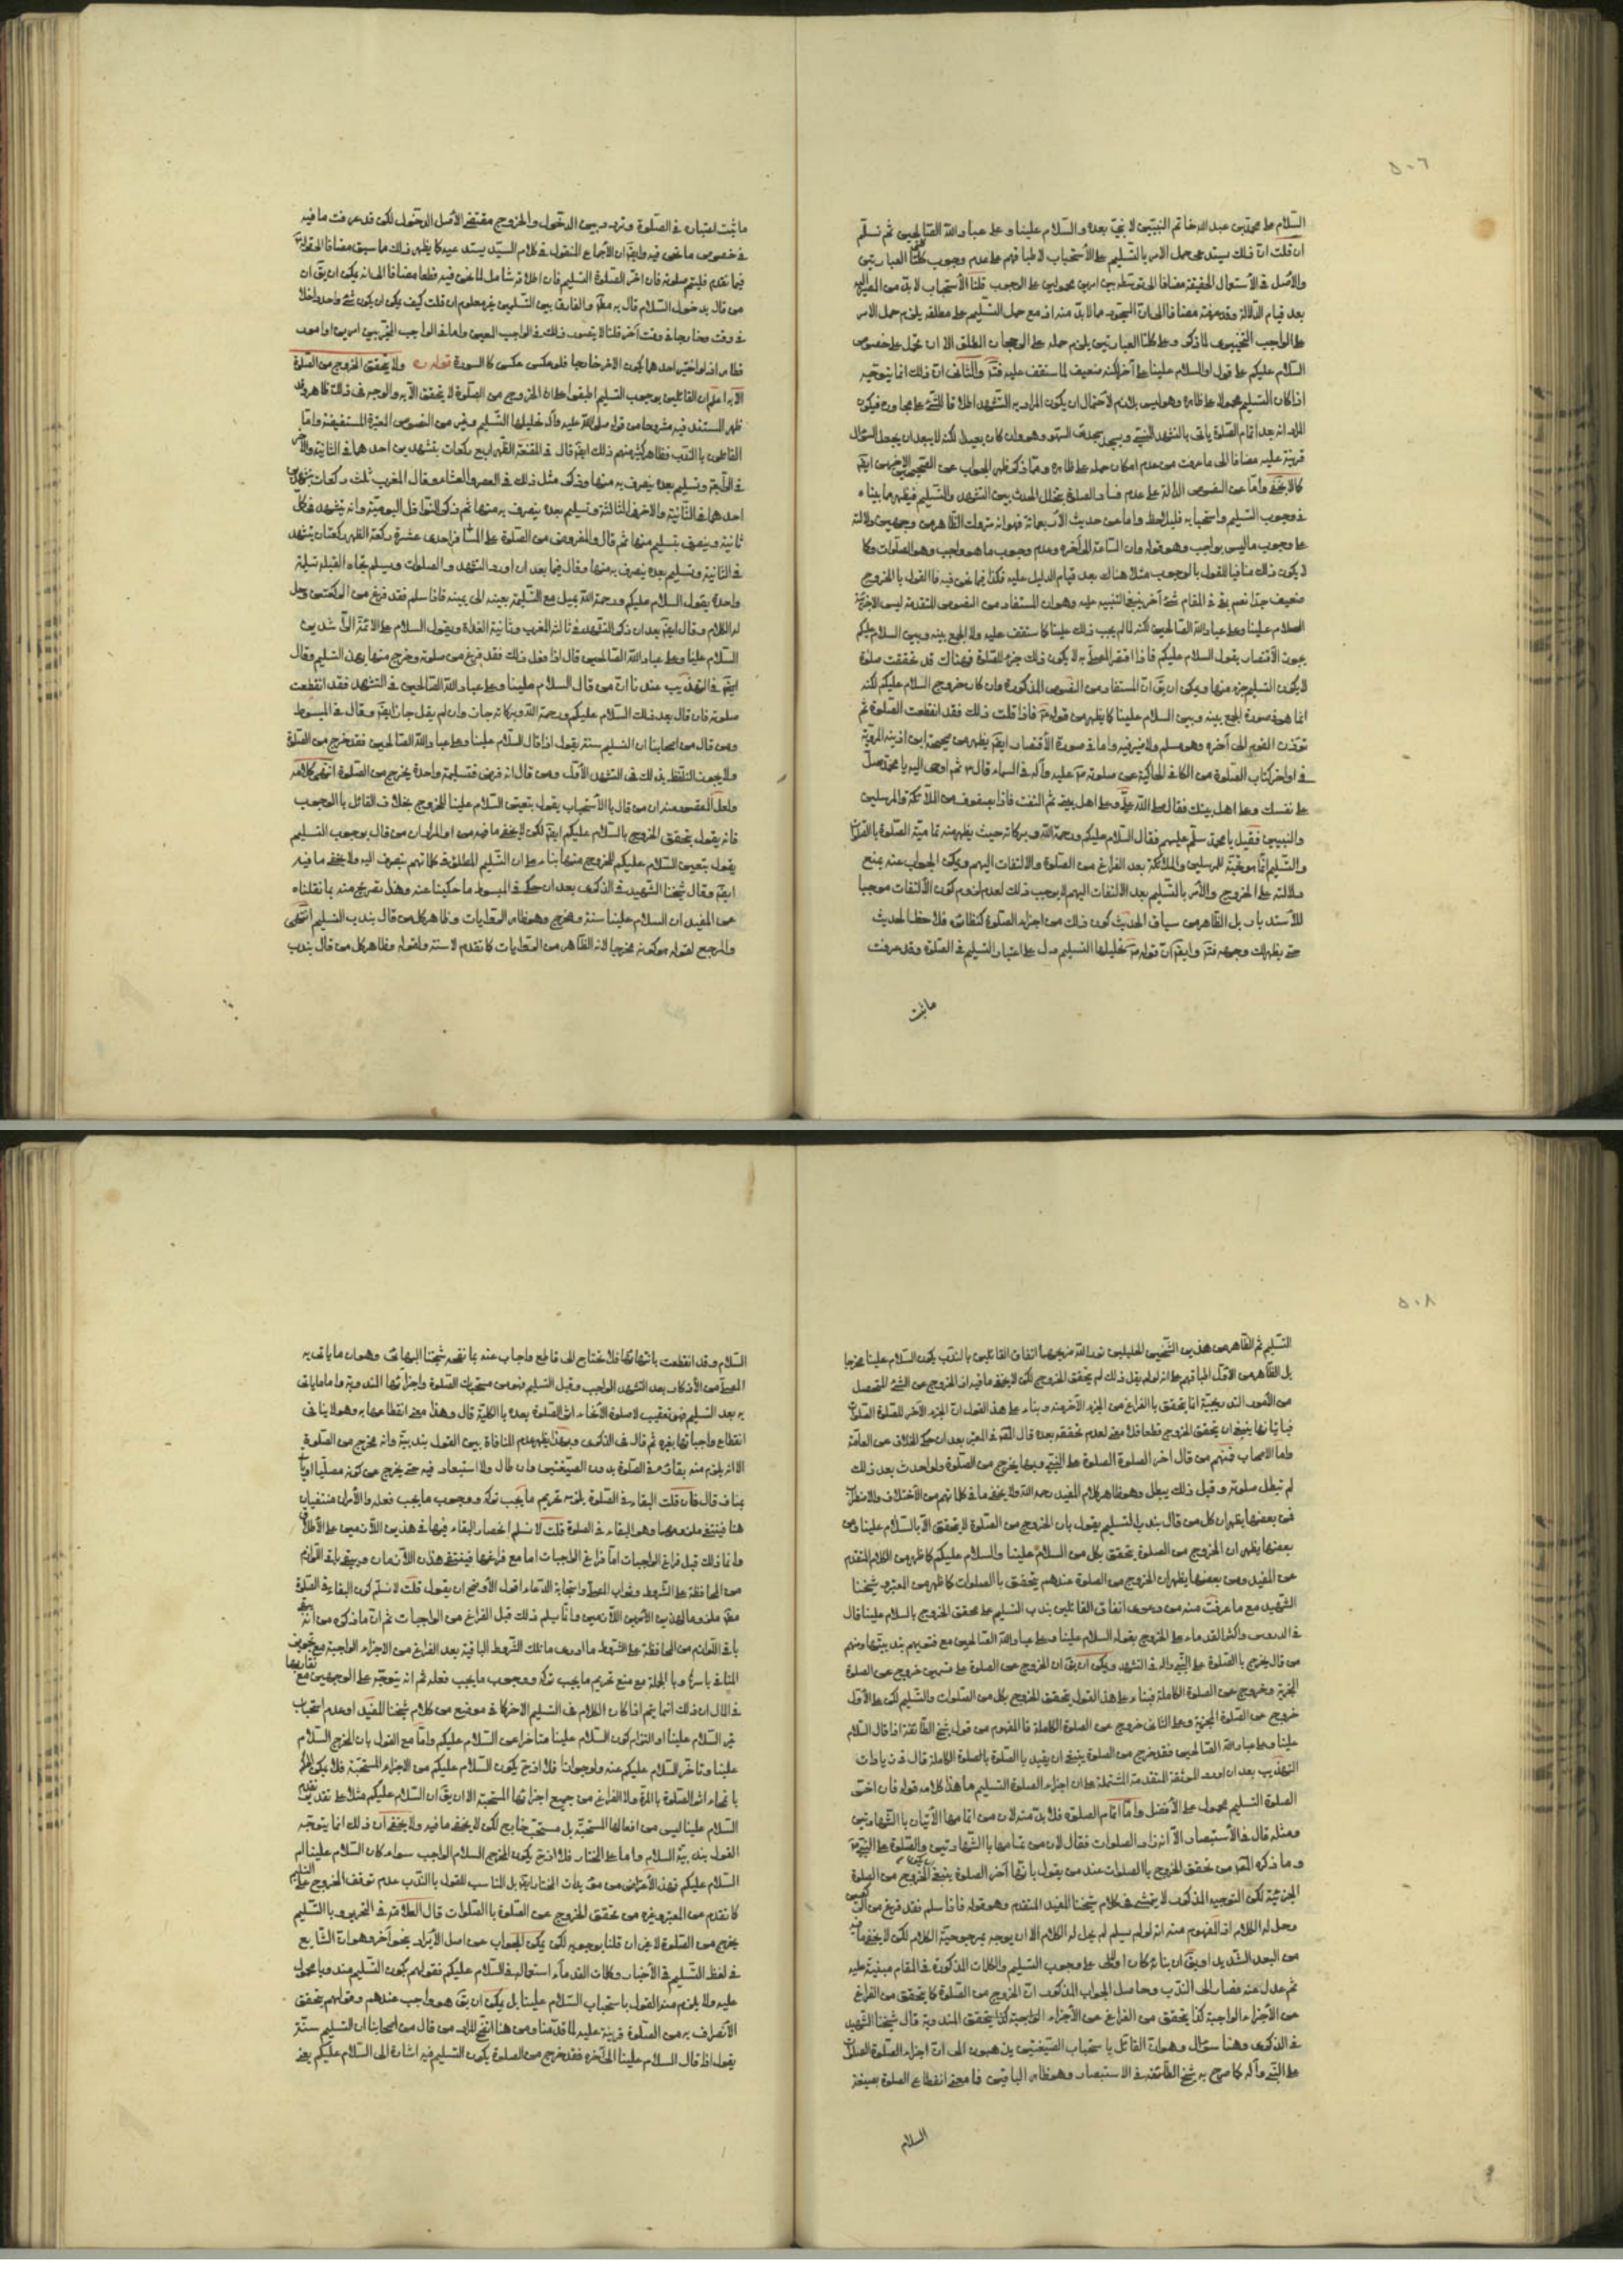 ٥٠٦
السّلام على محمّد بن عبد الله خاتم النبيّين لا نبيّ بعده والسّلام علينا وعلى عباد الله الصّالحين ثم تسلّم
ان قلت انّ ذلك يستدعى حمل الامر بالتّسليم على الأستحباب لاطباقهم على عدم وجوب كلتا العبارتين
والأصل في الأستعمال الحقيقة مضافا الى قلنا الأستحباب لا بدّ من المصير اليه
بعد قيام الدّلالة وقد عرفته مضافا الى انّ التجوّز ممّا لا بدّ منه اذ مع حمل التّسليم على مطلقه يلزم حمل الامر
على الواجب التخييرى لما ذكر وعلى كلتا العبارتين يلزم حمله على الرجحان المطلق الا ان تحمل على خصوص
السّلام عليكم على قول او السّلام علينا على آخر لكنه ضعيف لما ستقف عليه فتدبّر والثّانى انّ ذلك انما يتوجّه
اذا كان التّسليم محمولا على ظاهره وهو ليس بلازم لأحتمال ان يكون المراد به التّشهد اطلاقا للشّئ على مجاوره فيكون
المراد انه بعد اتمام الصّلوة ياتى بالتشهد ويسجد سجدتى السّهو وهو وان كان بعيدا لكنه لا يبعد ان يجعل السّؤال
قرينة عليه مضافا الى ما عرفت من عدم امكان حمله على ظاهره وممّا ذكر ظهر الجواب عن الصّحيحين الاخيرين ايضا
كما لا يخفى وامّا عن النصوص الدالة على عدم فساد الصلوة بتخلل الحدث بين التشهد والتّسليم فيظهر ما بيناه
في وجوب التسليم واستحبابه فليلاحظ واما عن حديث الأربعمائة فهو انه متروك الظاهر من وجهين دلالته
على وجوب ما ليس بواجب وهو قوله وان السّاعة الى آخره وعدم وجوب ما هو واجب وهو الصّلوات وكما
لا يكون ذلك منافيا للقول بالوجوب مثلا هناك بعد قيام الدليل عليه فكذا فيما نحن فيه فالقول بالخروج
ضعيف جدّا نعم بقى في المقام شئ آخر ينبغى التنبيه عليه وهو ان المستفاد من النصوص المتقدمة ليس
السلام علينا وعلى عباد الله الصالحين لكنه لما لم يجب ذلك علينا كما ستقف عليه ولا الجمع بينه وبين السلام عليكم
يجوز الأقتصار بقول السلام عليكم فاذا اقتصر المصلّى به لا يكون ذلك جزء للصّلوة فهناك قد تحققت صلوة
لا يكون التسليم جزء منها ويمكن ان يق انّ المستفاد من النصوص المذكورة وان كان خروج السلام عليكم لكنه
انما هو في صورة الجمع بينه وبين السلام علينا كما يظهر من قوله ع فاذا قلت ذلك فقد انقطعت الصّلوة ثم
تؤذن القوم الى آخره وهو مسلم ولا ضير فيه واما في صورة الأقتصار ايضا يظهر من صحيحة ابن اذينه المروية
في اواخر كتاب الصّلوة من الكافى الحاكية عن صلوته عليه وآله في السماء قال ثم اوحى اليه يا محمد صلّ
على نفسك وعلى اهل بيتك فقال صلى الله علىّ وعلى اهل بيتى ثم التفت فاذا بصفوف من الملائكة والمرسلين
والنبيين فقيل يا محمّد سلّم عليهم فقال السلام عليكم ورحمة الله وبركاته حيث يظهر منه تمامية الصّلوة بالصّلوات
والتسليم انّما هو تحيّة للمرسلين والملائكة بعد الفراغ من الصّلوة والالتفات اليهم ويمكن الجواب عنه بمنع
دلالته على الخروج والأمر بالتّسليم بعد الالتفات اليهم لا يوجب ذلك لعدم لزوم كون الألتفات موجبا
للأستدبار بل الظاهر من سياق الحديث كون ذلك من اجزاء الصلوة كنظائره فلاحظ الحديث
حتى يظهر لك وجهه فتدبّر وايضا انّ قوله ع تحليلها التسليم يدل على اعتبار التسليم في الصّلوة وقد عرفت
ما ثبت
ما ثبت اعتباره في الصّلوة وتردد بين الدخول والخروج مقتضى الأصل الدخول لكن قد عرفت ما فيه
في خصوص ما نحن فيه وايضا ان الأجماع المنقول في كلام السيّد يستدعيه كما يظهر ذلك مما سبق مضافا الى قوله ع
فيما تقدم فليتم صلوته فان آخر الصلوة التسليم فان اطلاقه شامل لما نحن فيه قطعا مضافا الى انه يمكن ان يق ان
من قال بدخول السّلام قال به مطلقا والفارق بين التسليمين غير معلوم ان قلت كيف يمكن ان يكون شئ واحد داخلا
في وقت وخارجا في وقت آخر قلنا لا يتصور ذلك في الواجب العينى واما في الواجب المخيّر بين امرين او امور
فظاهر اذ لو اختير احدهما يكون الآخر خارجا فلو عكس عكس كالسورة قوله ولا يتحقق الخروج من الصّلوة
الا به اعلم ان القائلين بوجوب التسليم اطبقوا على ان الخروج من الصّلوة لا يتحقق الا به والوجه في ذلك ظاهر وقد
ظهر المستند فيه مشروحا من قوله صلى الله عليه وآله تحليلها التّسليم وغيره من النصوص المعتبرة المستفيضة وامّا
القائلون بالندب فظاهر كثير منهم ذلك ايضا قال في المقنعة الظهر اربع ركعات بتشهدين احدهما في الثانية والآخر
في الرّابعة وتسليم بعده ينصرف به منها وذكر مثل ذلك في العصر والعشاء وقال المغرب ثلث ركعات بتشهدين
احدهما في الثّانية والآخر في الثالثة وتسليم بعده ينصرف به منها ثم ذكر النوافل اليومية وانه يتشهد في كلّ
ثانية وينصرف بتسليم منها ثم قال والمفروض من الصّلوة على المسافر احدى عشرة ركعة الظهر ركعتان بتشهد
في الثانية وتسليم بعده ينصرف به منها وقال فيما بعد ان اورد التشهد والصلوات ويسلم تجاه القبلة تسليمة
واحدة يقول السلام عليكم ورحمة الله يميل مع التسليمة بعينه الى يمينه فاذا سلم فقد فرغ من الركعتين وحل
له الكلام وقال ايضا بعد ان ذكر التشهد في ثالثة المغرب وثانية الغداة ويقول السلام على الائمة الرّاشدين
السّلام علينا وعلى عباد الله الصالحين قال اذا فعل ذلك فقد فرغ من صلوته وخرج منها بهذا التسليم وقال
ايضا في التهذيب عندنا انّ من قال السلام علينا وعلى عباد الله الصالحين في التشهد فقد انقطعت
صلوته فان قال بعد ذلك السّلام عليكم ورحمة الله وبركاته جاز وان لم يقل جاز ايضا وقال في المبسوط
ومن قال من اصحابنا ان التسليم سنة يقول اذا قال السّلام علينا وعلى عباد الله الصالحين فقد خرج من الصّلوة
ولا يجوز التلفّظ بذلك في التشهد الأوّل ومن قال انه فرض فتسليمة واحدة يخرج من الصّلوة انتهى كلامه
ولعل المقصود منه ان من قال بالأستحباب يقول بتعيين السّلام علينا للخروج بخلاف القائل بالوجوب
فانه يقول بتحقق الخروج بالسّلام عليكم ايضا لكن لا يخفى ما فيه او المراد ان من قال بوجوب التسليم
يقول بتعيين السّلام عليكم للخروج منها بناء على ان التّسليم المطلق في كلماتهم ينصرف اليه ولا يخفى ما فيه
ايضا وقال شيخنا الشّهيد في الذكرى بعد ان حكى في المبسوط ما حكيناه عنه وهذا تصريح منه بما نقلناه
عن المفيد ان السلام علينا سنة ومخرج وهو ظاهر الروايات وظاهر كل من قال بندب التسليم انتهى
والمرجع لقوله هو كونه مخرجا لانه الظاهر من الروايات كما تقدم لا سنة ولقوله وظاهر كل من قال بندب
٥٠٨
التسليم ثم الظاهر من هذين الشّيخين الجليلين نور الله ضريحهما اتفاق القائلين بالندب بكون السّلام علينا مخرجا
بل الظاهر من الأوّل اطباقهم على انه لو لم يقل ذلك لم يتحقق الخروج لكن لا يخفى ما فيه اذ الخروج عن الشئ المتحصل
من الأمور التدريجيّة انما يتحقق بالفراغ من الجزء الآخر منه وبناء على هذا القول انّ الجزء الآخر للصّلوة الصّلوات
فباتيانها ينبغى ان يتحقق الخروج قطعا فلا معنى لعدم تحققه بعده قال المحقق في المعتبر بعد ان حكى الخلاف عن العامّة
واما الاصحاب فمنهم من قال آخر الصلوة الصلوة على النبى وبها يخرج من الصلوة ولو احدث بعد ذلك
لم تبطل صلوته وقبل ذلك يبطل وهو ظاهر كلام المفيد رحمه الله ولا يخفى ما في كلماتهم من الأختلاف والاضطراب
فمن بعضها يظهر ان كل من قال بندب التسليم يقول بان الخروج من الصّلوة لا يتحقق الا بالسّلام علينا ومن
بعضها يظهر ان الخروج من الصلوة يتحقق بكل من السلام علينا والسلام عليكم كما ظهر من الكلام المتقدم
عن المفيد ومن بعضها يظهر ان الخروج من الصلوة عندهم يتحقق بالصلوات كما ظهر من المعتبر وشيخنا
الشهيد مع ما عرفت منه من دعوى اتفاق القائلين بندب التسليم على تحقق الخروج بالسلام علينا قال
في الدروس واكثر القدماء على الخروج بقوله السلام علينا وعلى عباد الله الصالحين مع فتويهم بندبيتها ومنهم
من قال يخرج بالصّلوة على النبى وآله في التشهد ويمكن ان يق ان الخروج عن الصلوة على قسمين خروج عن الصلوة
المجزية وخروج عن الصلوة الكاملة فبناء على هذا القول يتحقق الخروج بكل من الصلوات والتّسليم لكن على الأوّل
خروج عن الصّلوة المجزية وعلى الثانى خروج عن الصلوة الكاملة فالمفهوم من قول شيخ الطّائفة اذا قال السّلام
علينا وعلى عباد الله الصالحين فقد خرج من الصلوة ينبغى ان يقيد بالصّلوة بالصلوة الكاملة قال في زيادات
التهذيب بعد ان اورد الموثقة المتقدمة المشتملة على ان آخر الصلوة التسليم ما هذا كلامه قوله فان آخر
الصلوة التسليم محمول على الأفضل وامّا اتمام الصلوة فلا بدّ منه لان من اتمامها الأتيان بالشّهادتين
ومثله قال في الأستبصار الّا انه زاد الصلوات فقال لان من تمامها بالشّهادتين والصّلوة على النبى
وما ذكره المحقق من تحقق الخروج بالصلوات عند من يقول بانها آخر الصلوة ينبغى الخروج من الصلوة
المجزئية لكن التوجيه المذكور لا يتمشى في كلام شيخنا المفيد المتقدم وهو قوله فاذا سلم فقد فرغ من الركعتين
وحل له الكلام اذ المفهوم منه انه لو لم يسلم لم يحل له الكلام الا ان يوجه بمرجوحية الكلام لكن لا يخفى ما فيه
من البعد الشّديد او يق ان بنائه كان اوّلا على وجوب التسليم والكلمات المذكورة في المقام مبنية عليه
ثم عدل عنه فصار الى الندب وحاصل الجواب المذكور انّ الخروج من الصّلوة كما يتحقق من الفراغ
من الأجزاء الواجبة كذا يتحقق من الفراغ عن الأجزاء المندوبة قال شيخنا الشّهيد
في الذكرى وهنا سؤال وهو انّ القائل باستحباب الصّيغتين يذهبون الى انّ آخر اجزاء الصلوة الصلوات
على النّبى وآله كما صرح به شيخ الطّائفة في الاستبصار وهو ظاهر الباقين فما معنى انقطاع الصلوة بصيغة
السلام
السّلام وقد انقطعت بانتهائها فلا تحتاج الى قاطع واجاب عنه بما نقحه شيخنا البهائى وهو ان ما ياتى به
المصلّى من الأذكار بعد التشهد الواجب وقبل التسليم فهو من مستحبات الصّلوة واجزائها المندوبة واما ما ياتى
به بعد التسليم فهو تعقيب لا صلوة لأنتفاء اثر الصّلوة بعده بالكليّة قال وهذا معنى انقطاعها به وهو لا ينافى
انقطاع واجباتها بغيره ثم قال في الذكرى وبهذا يظهر عدم المنافاة بين القول بندبيّة وانه مخرج من الصلوة
الا انه يلزم منه بقائه في الصّلوة بدون الصّيغتين وان طال ولا استبعاد فيه حتى يخرج عن كونه مصلّيا او ياتى
بمناف قال فان قلت البقاء في الصّلوة يلزمه تحريم ما يجب تركه ووجوب ما يجب فعله والأمران منتفيان
هنا فينتفى ملزومهما وهو البقاء في الصلوة قلت لا نسلم انحصار البقاء فيها في هذين اللّازمين على الأطلاق
وانما ذلك قبل فراغ الواجبات امّا مع فراغها فينتفى هذان اللّازمان ويبقى باقى اللّوازم
من المحافظة على الشّروط وثواب المصلّى واستجابة الدّعاء اقول الأوضح ان يقول قلت لا نسلّم كون البقاء في الصّلوة
مطلقا ملزوما لهذين الأمرين اللّازمين وانّما يلزم ذلك قبل الفراغ من الواجبات ثم انّ ما ذكره من انه يبقى
باقى اللّوازم من المحافظة على الشّروط ما ادرى ما تلك الشّروط الباقية بعد الفراغ من الاجزاء الواجبة مع تجويز
المنافى باسره وبالجملة مع منع تحريم ما يجب تركه ووجوب ما يجب فعله ثم انه يتوجّه على الوجهين مع تقاربهما
في المآل ان ذلك انما يتم اذا كان الكلام في التسليم الآخر كما في موضع من كلام شيخنا المفيد او عدم استحباب
غير السّلام علينا او التزام كون السّلام علينا متاخرا عن السّلام عليكم وامّا مع القول بان المخرج السّلام
علينا وتاخر السّلام عليكم عنه ولو جوازا فلا اذ ح يكون السّلام عليكم من الاجزاء المستحبّة فلا يمكن الحكم
بانمحاء اثر الصّلوة بالمرة ولا الفراغ من جميع اجزائها المستحبة الا ان يق ان السّلام عليكم مثلا على تقدير تقديم
السّلام علينا ليس من افعالها المستحبّة بل مستحب خارج لكن لا يخفى ما فيه ولا يخفى ان ذلك انما يتوجّه
القول بندبية السّلام واما على المختار فلا اذ ح يكون المخرج السلام الواجب سواء كان السّلام علينا ام
السّلام عليكم فهذا الأعتراض من مؤيدات المختار ايضا بل المناسب للقول بالنّدب عدم توقف الخروج على التسليم
كما تقدم من المعتبر وغيره من تحقق الخروج عن الصلوة بالصّلوات قال العلّامة في التحرير وبالتّسليم
يخرج من الصّلوة لا غير ان قلنا بوجوبه لكن يمكن الجواب عن اصل الأيراد بنحو آخر وهو انّ الشّايع
في لفظ التّسليم في الأخبار وكلمات القدماء استعماله في السّلام عليكم فقولهم بكون التّسليم مندوبا محمول
عليه ولا يلزم منه القول باستحباب السّلام علينا بل يمكن ان يق هو واجب عندهم وقولهم بتحقق
الأنصراف به من الصّلوة قرينة عليه لما قدّمنا ومن هنا اتّضح المراد من قال من اصحابنا ان التّسليم سنّة
يقول اذا قال السّلام علينا الى آخره فقد خرج من الصلوة يكون التسليم فيه اشارة الى السّلام عليكم يعنى